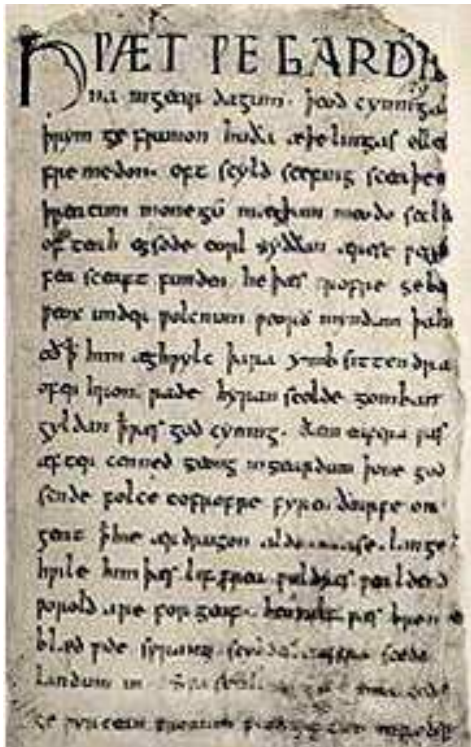 HǷÆT ǷE GARDE
na ingear dagum. þeod cyninga
þrym ge frunon huða æþelingas elle
fre medon. oft scyld scefing sceaþe
þreatum monegū mægþum meodo setla
of teah egsode eorl syððan ærest ƿear
fea sceaft funden he þæs frofre geba
ƿeox under ƿolcnum ƿeorð myndum þah
oð ꝥ him æghƿylc þara ymb sittendra
ofer hron rade hyran scolde gomban
gyldan ꝥ ƿæs god cyning. ðæm eafera ƿæs
æfter cenned geong ingeardum þone god
sende folce tofrofre fyren ðearfe on
geat ꝥ hie ær drugon aldor ase. lange
hƿile him þæs lif frea ƿuldres ƿealdend
ƿorold are for geaf. beoƿulf ƿæs breme
blæd ƿide sprang scyldes eafera scede
landum in
ge ƿyrcean fromum feoh giftum